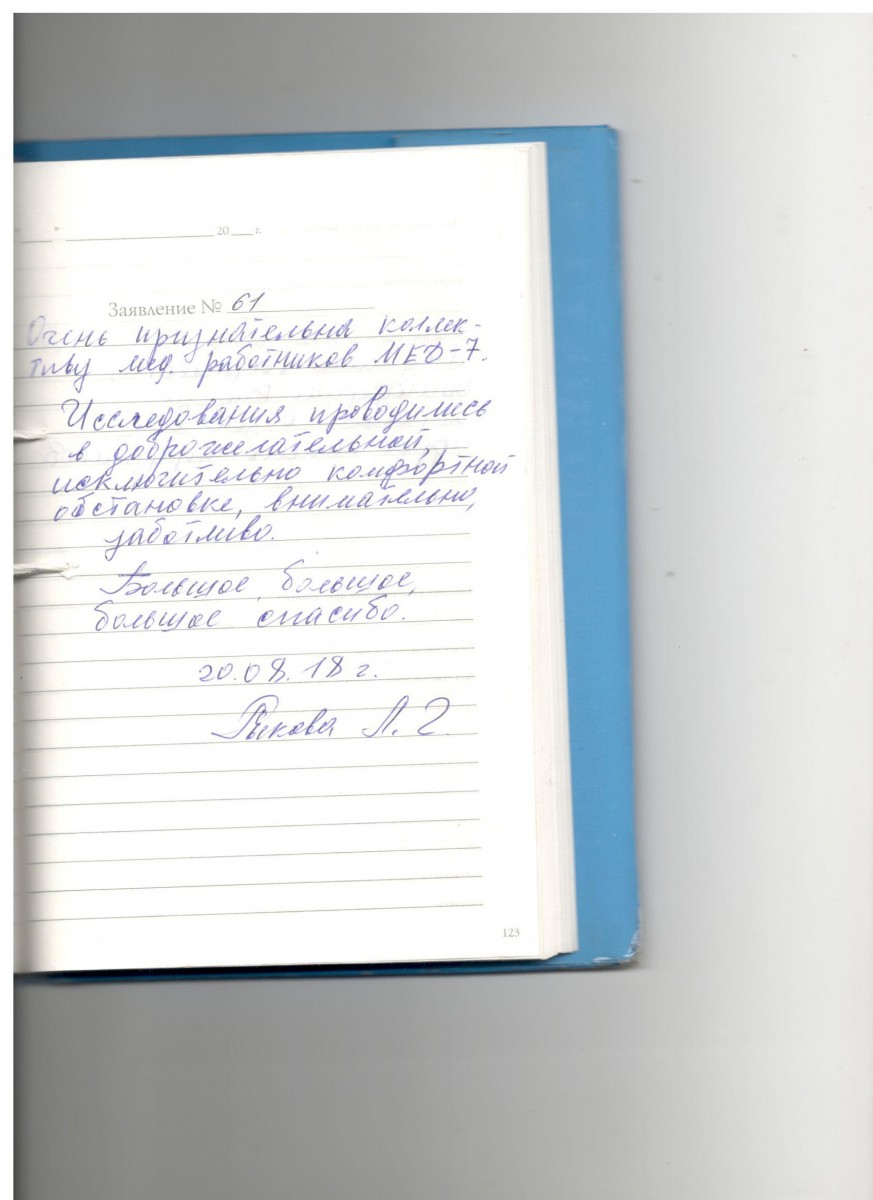 20 г.
Заявление № 61
Очень признательна коллек-
тиву мед. работников МЕД-7.
Исследования проводились
в доброжелательной,
исключительно комфортной
обстановке, внимательно,
заботливо.
Большое, большое,
большое спасибо.
20.08.18 г.
Рыкова Л. Г.
123